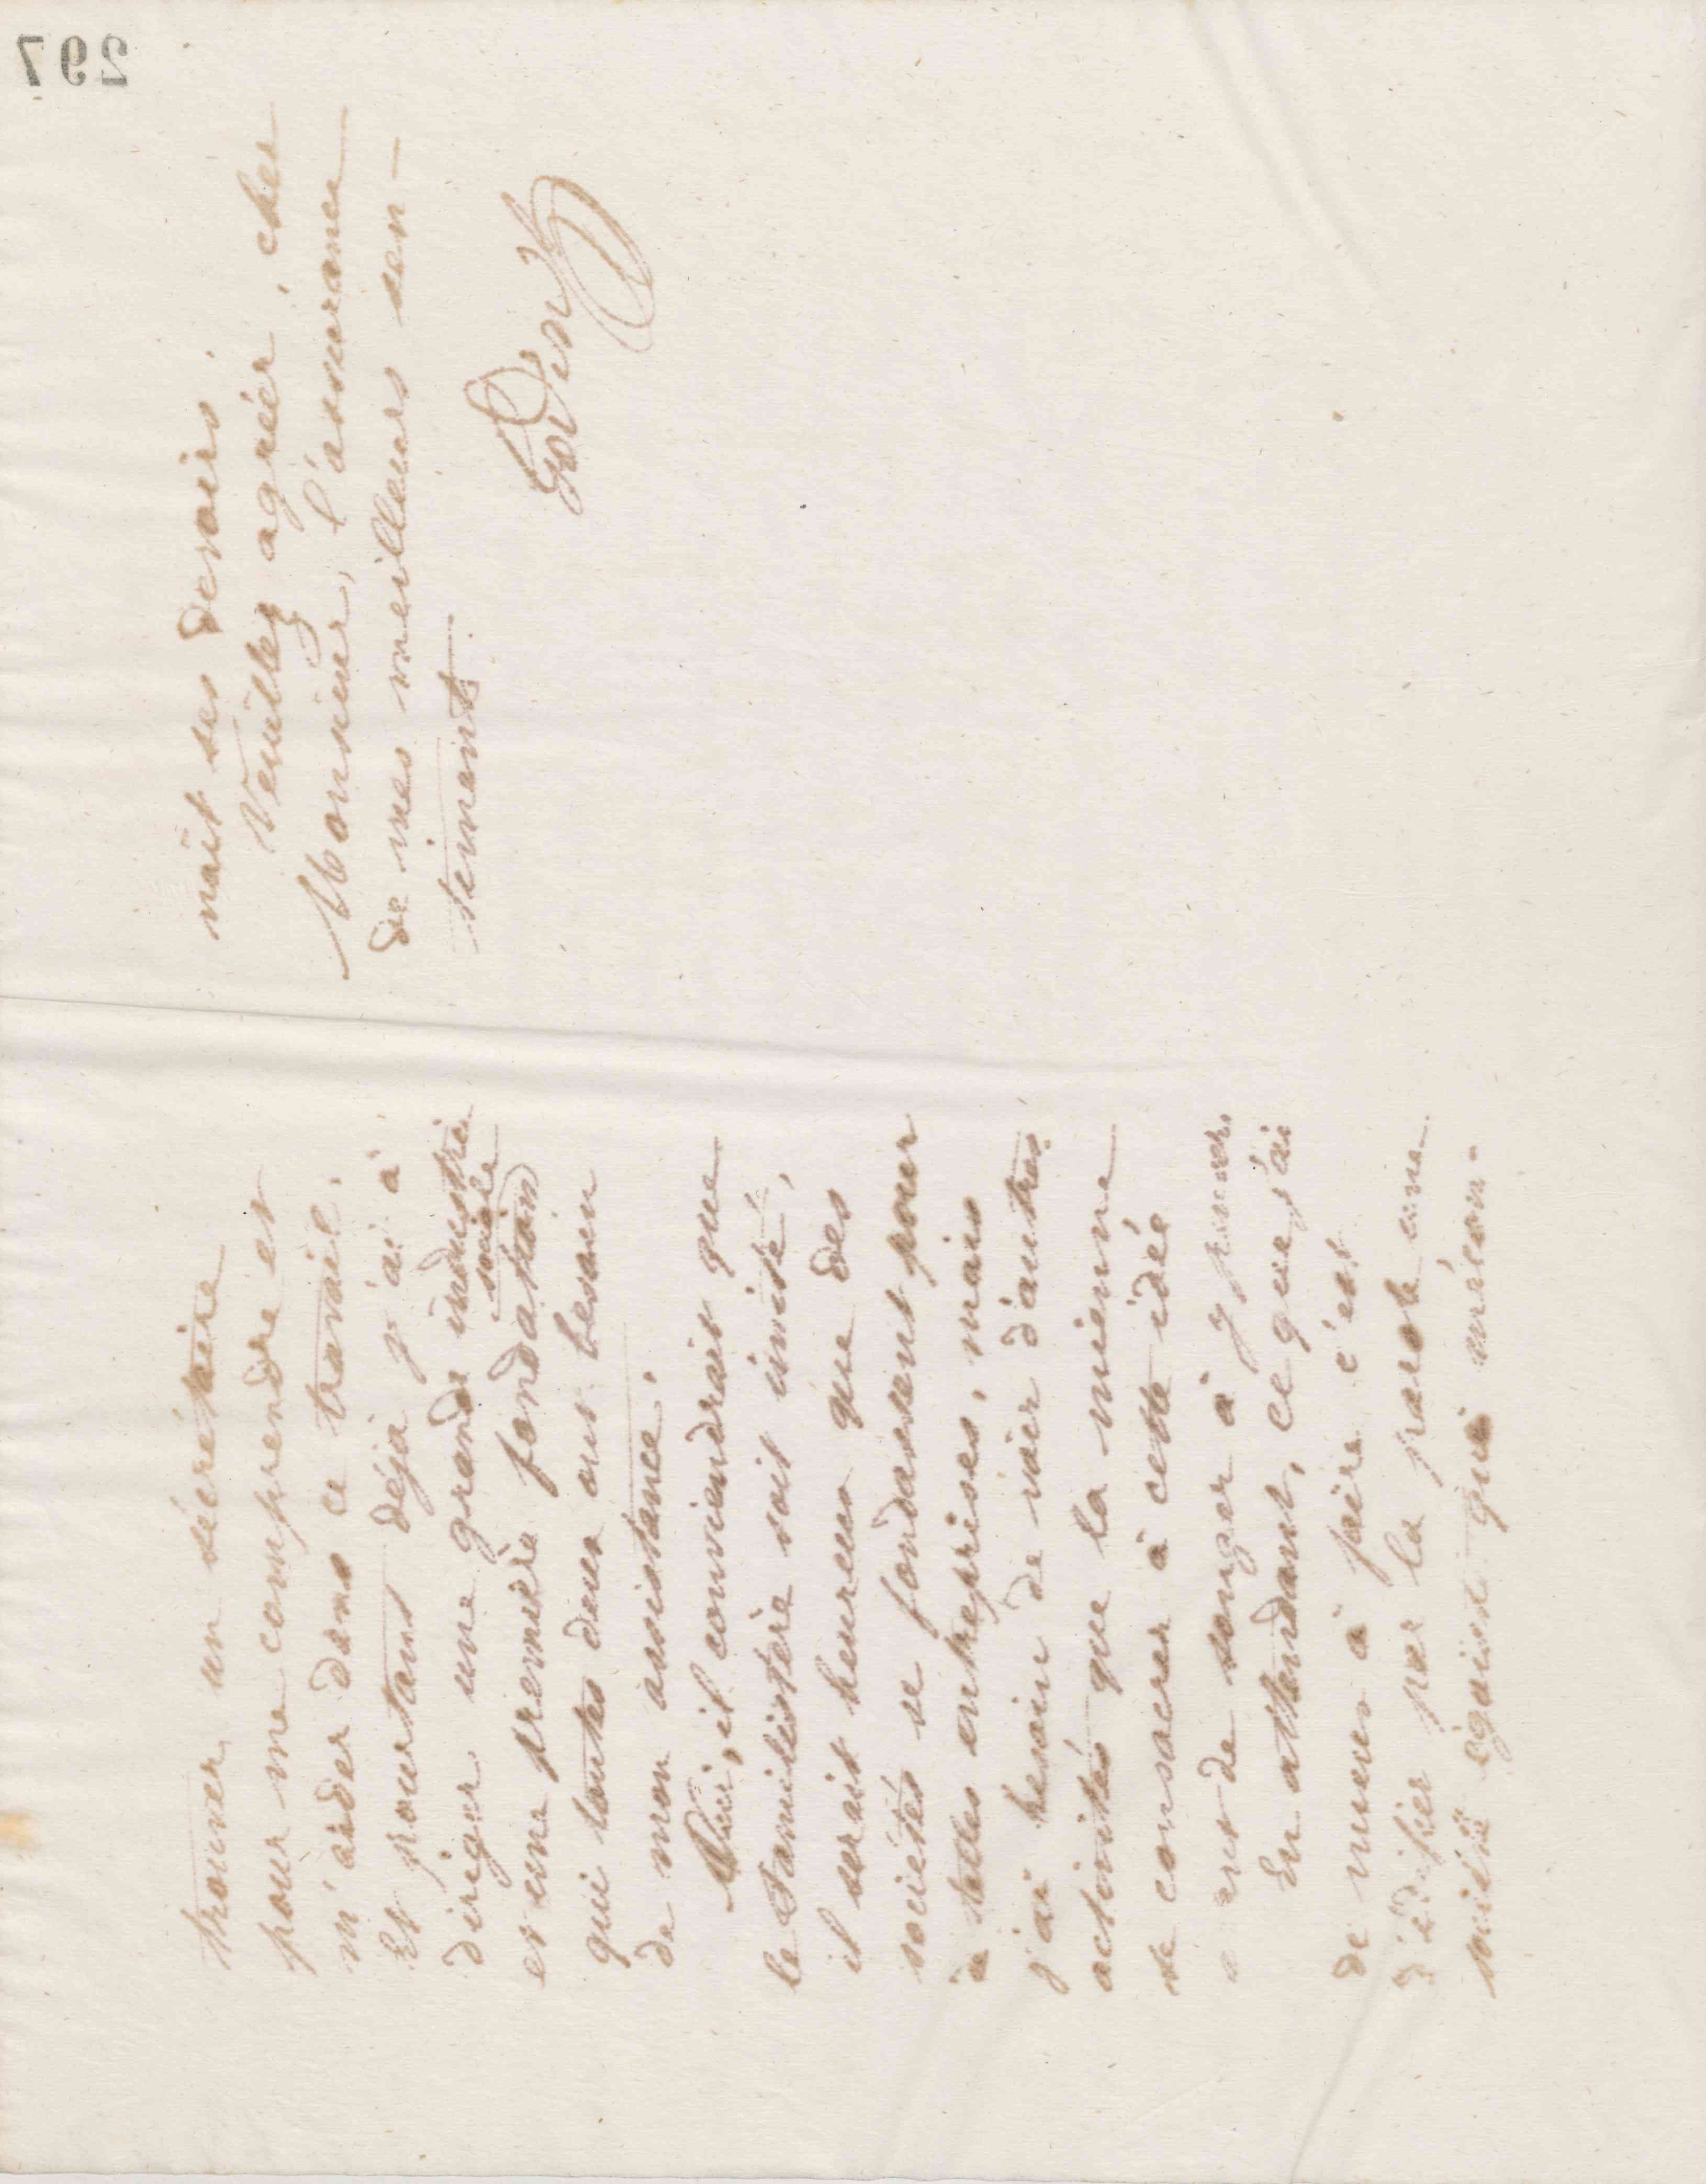 trouver un sécrétaire
pour me comprendre et
m'aider dans ce travail.
Et pourtant déjà j'ai à
diriger une grande industrie
et une première fondation sociale
qui toutes deux ont besoin
de mon assistance.
Oui, il conviendrait que
le Familistère soit imité,
il serait heureux que des
sociétés se fondassent pour
de telles entreprises, mais
j'ai besoin de voir d'autres
activités que la mienne
se consacrer à cette idée
avant de songer à y penser.
En attendant, ce que j'ai
de mieux à faire c'est
d'édifier par la parole une
société égoïste qui mécon-
naît ses devoirs.
Veuillez agréer, cher
Monsieur, l'assurance
de mes meilleurs sen-
timents.
Godin
297